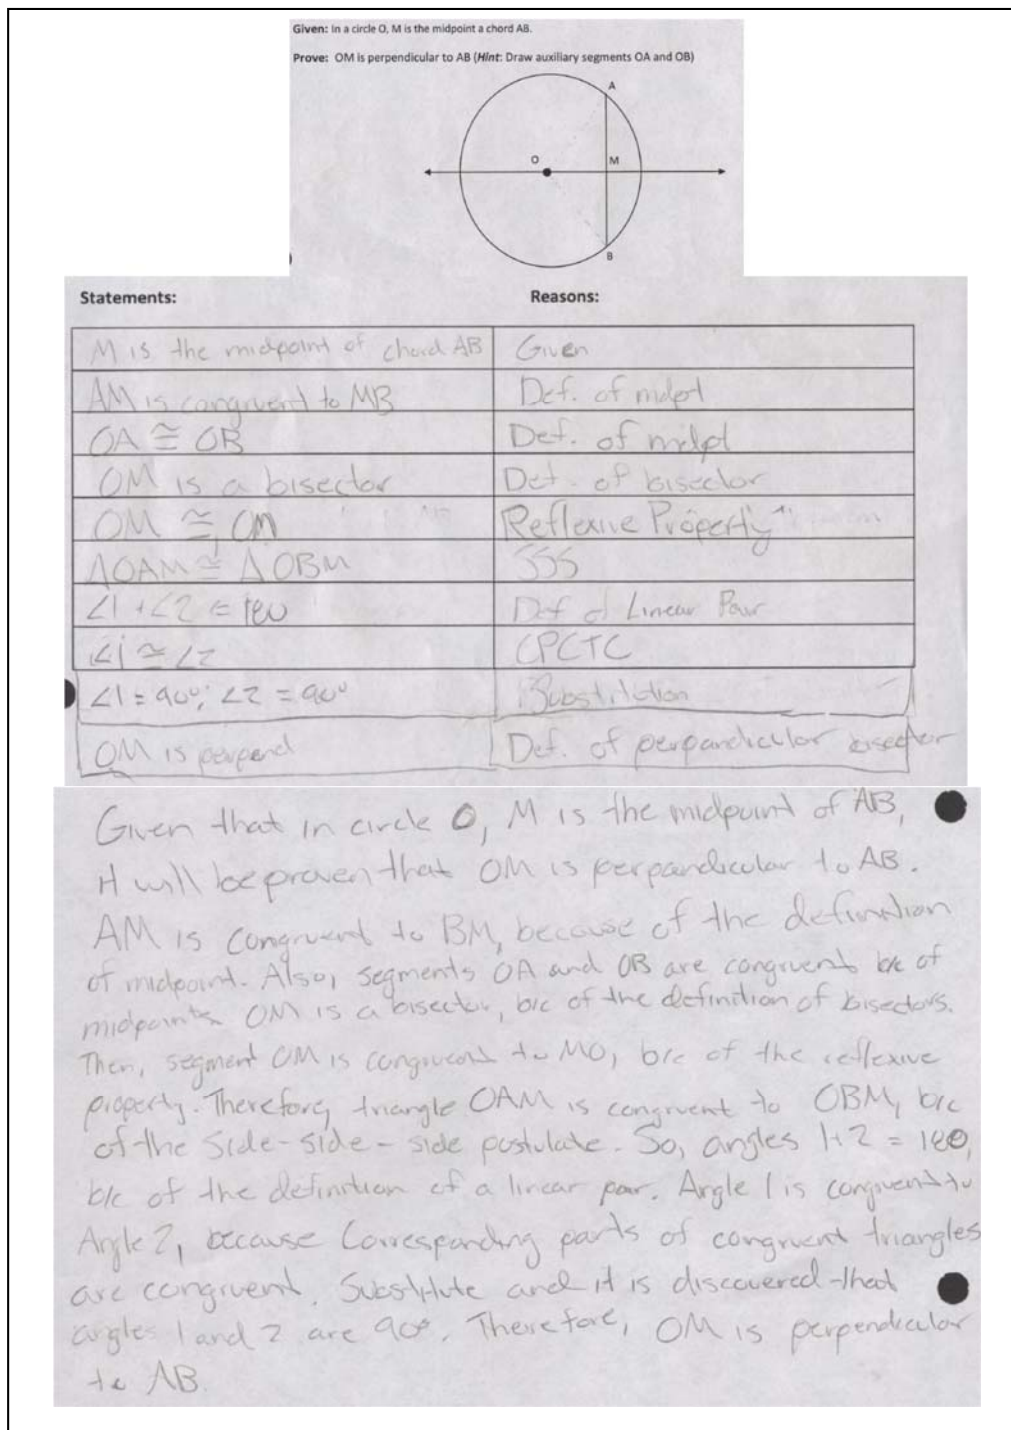 Given: In a circle O, M is the midpoint a chord AB.
Prove: OM is perpendicular to AB (Hint: Draw auxiliary segments OA and OB)
A
O
M
B
Statements: Reasons:
M is the midpoint of chord AB Given
AM is congruent to MB Def. of mdpt
OA ≅ OB Def. of mdpt
OM is a bisector Det. of bisector
OM ≅ OM Reflexive Property
ΔOAM ≅ ΔOBM SSS
∠1 + ∠2 = 180 Def of Linear Pair
∠1 ≅ ∠2 CPCTC
∠1 = 90°; ∠2 = 90° Substitution
OM is perpend Def. of perpandicular bisector
Given that in circle O, M is the midpoint of AB,
it will be proven that OM is perpandicular to AB.
AM is congruent to BM, because of the definition
of midpoint. Also, segments OA and OB are congruent b/c of
midpoints. OM is a bisector, b/c of the definition of bisectors.
Then, segment OM is congruent to MO, b/c of the reflexive
property. Therefore, triangle OAM is congruent to OBM, b/c
of the Side-side-side postulate. So, angles 1+2 = 180,
b/c of the definition of a linear pair. Angle 1 is congruent to
Angle 2, because Corresponding parts of congruent triangles
are congruent. Substitute and it is discovered that
angles 1 and 2 are 90°. Therefore, OM is perpendicular
to AB.